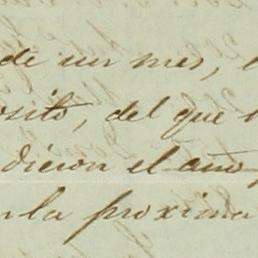 de un mes,
osito, del que
dieron el año
la proxima